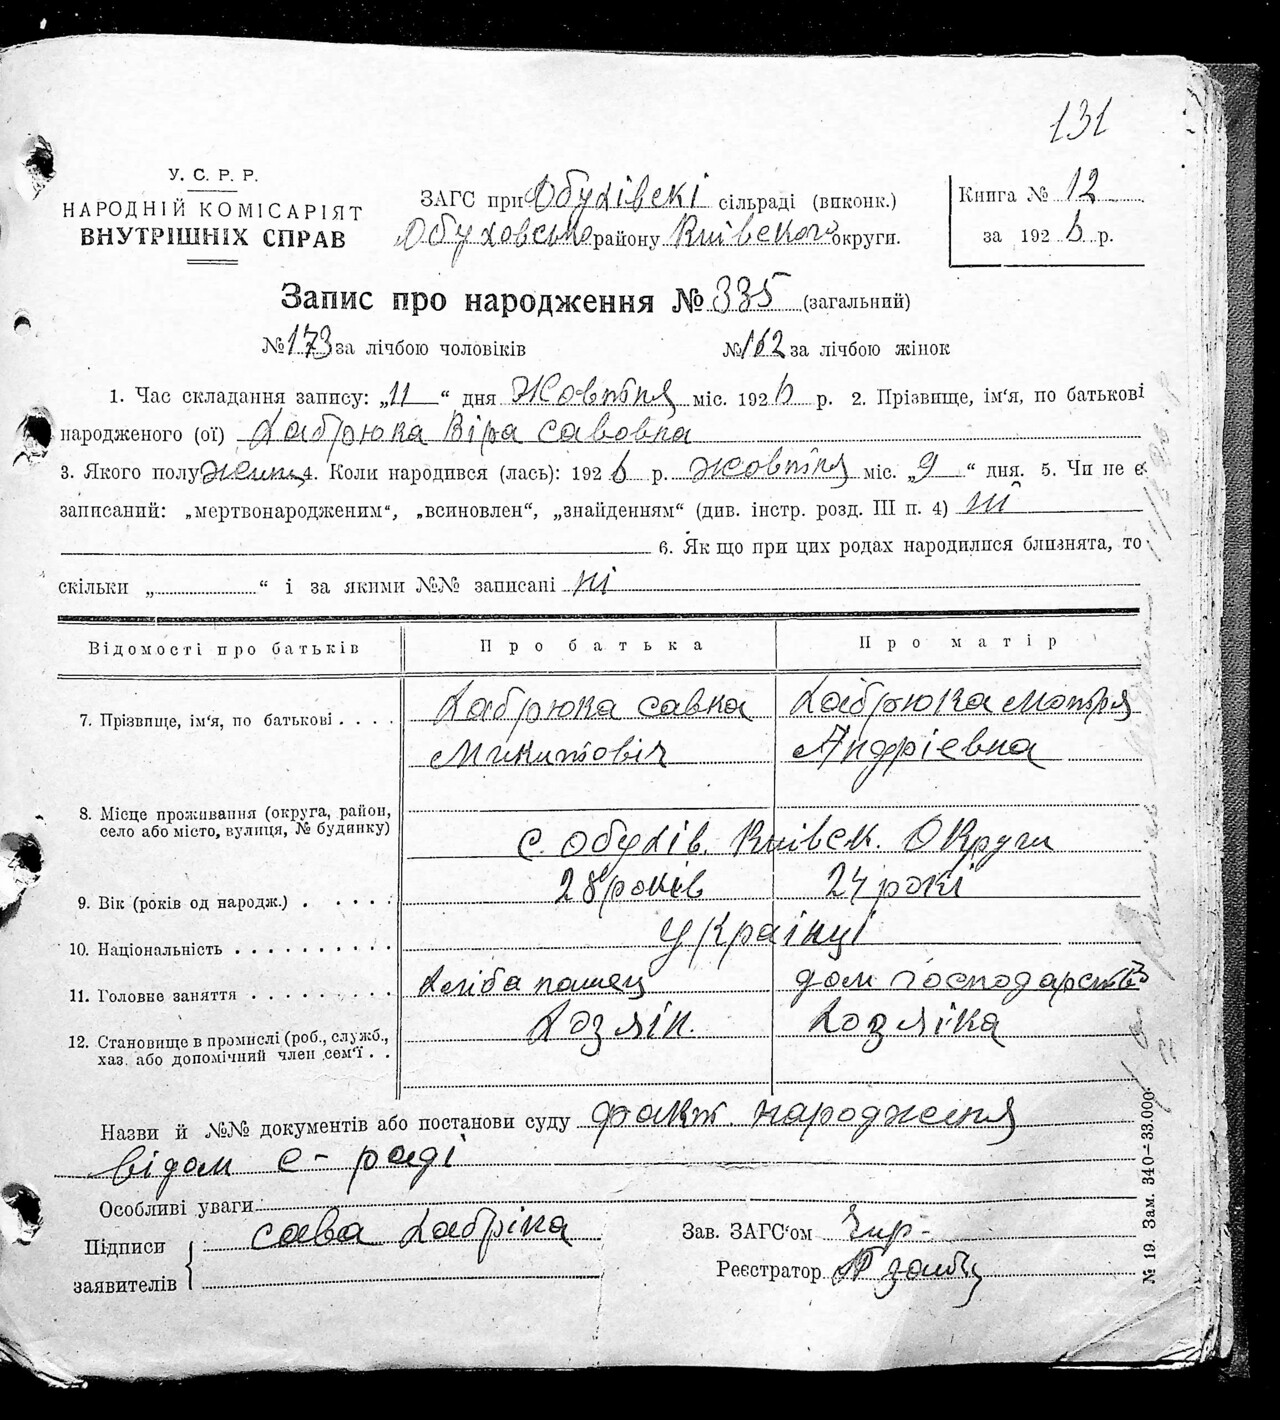 131
У. С. Р. Р.
НАРОДНІЙ КОМІСАРІЯТ
ВНУТРІШНІХ СПРАВ
ЗАГС при Обухівскі сільраді (виконк.)
Обуховсько району Київского округи.
Книга № 12
за 1926 р.
Запис про народження № 335 (загальний)
№ 173 за лічбою чоловіків № 162 за лічбою жінок
1. Час складання запису: „11“ дня Жовтня міс. 1926 р. 2. Прізвище, ім'я, по батькові
народженого (ої) Хабрюка Віра Савовна
3. Якого полу жіноц 4. Коли народився (лась): 1926 р. жовтня міс. „9“ дня. 5. Чи не є
записаний: „мертвонародженим“, „всиновлен“, „знайденням“ (див. інстр. розд. III п. 4) ні
6. Як що при цих родах народилися близнята, то
скільки „ “ і за якими №№ записані ні
Відомості про батьків Про батька Про матір
7. Прізвище, ім'я, по батькові . . . . Хабрюка Савка Хабрюка Мотря
Микитовіч Андріевна
8. Місце проживання (округа, район,
село або місто, вулиця, № будинку)
С. Обухів. Київск. Округи
9. Вік (років од народж.) . . . . . . 28 років 24 рокі
10. Національність . . . . . . . . . . Украінці
11. Головне заняття . . . . . . . . . Хліба пашец дом господарство
12. Становище в промислі (роб., служб., Хозяін. Хозяіка
хаз. або допомічний член сем'ї . .
Назви й №№ документів або постанови суду факт. народження
відом с-раді
Особливі уваги
Підписи
заявителів
Сава Хабріка
Зав. ЗАГС'ом
Реєстратор
№ 19. Зам. 340—33.000.